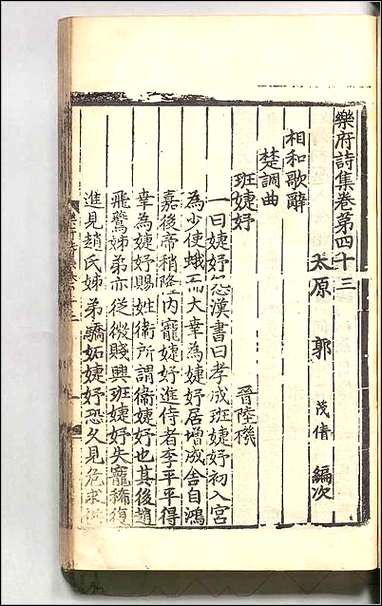 樂府詩集卷第四十三
太原 郭 茂倩 編次
相和歌辭
楚調曲
班婕妤 晉陸機
一曰婕妤怨漢書曰孝成班婕妤初入宮
為少使蛾而大幸為婕妤居增成舍自鴻
嘉後帝稍隆内寵婕妤進侍者李平平得
幸為婕妤賜姓衛所謂衛婕妤也其後趙
飛鷰姊弟亦從微賤興班婕妤失寵稀復
進見趙氏姊弟驕妬婕妤恐久見危求